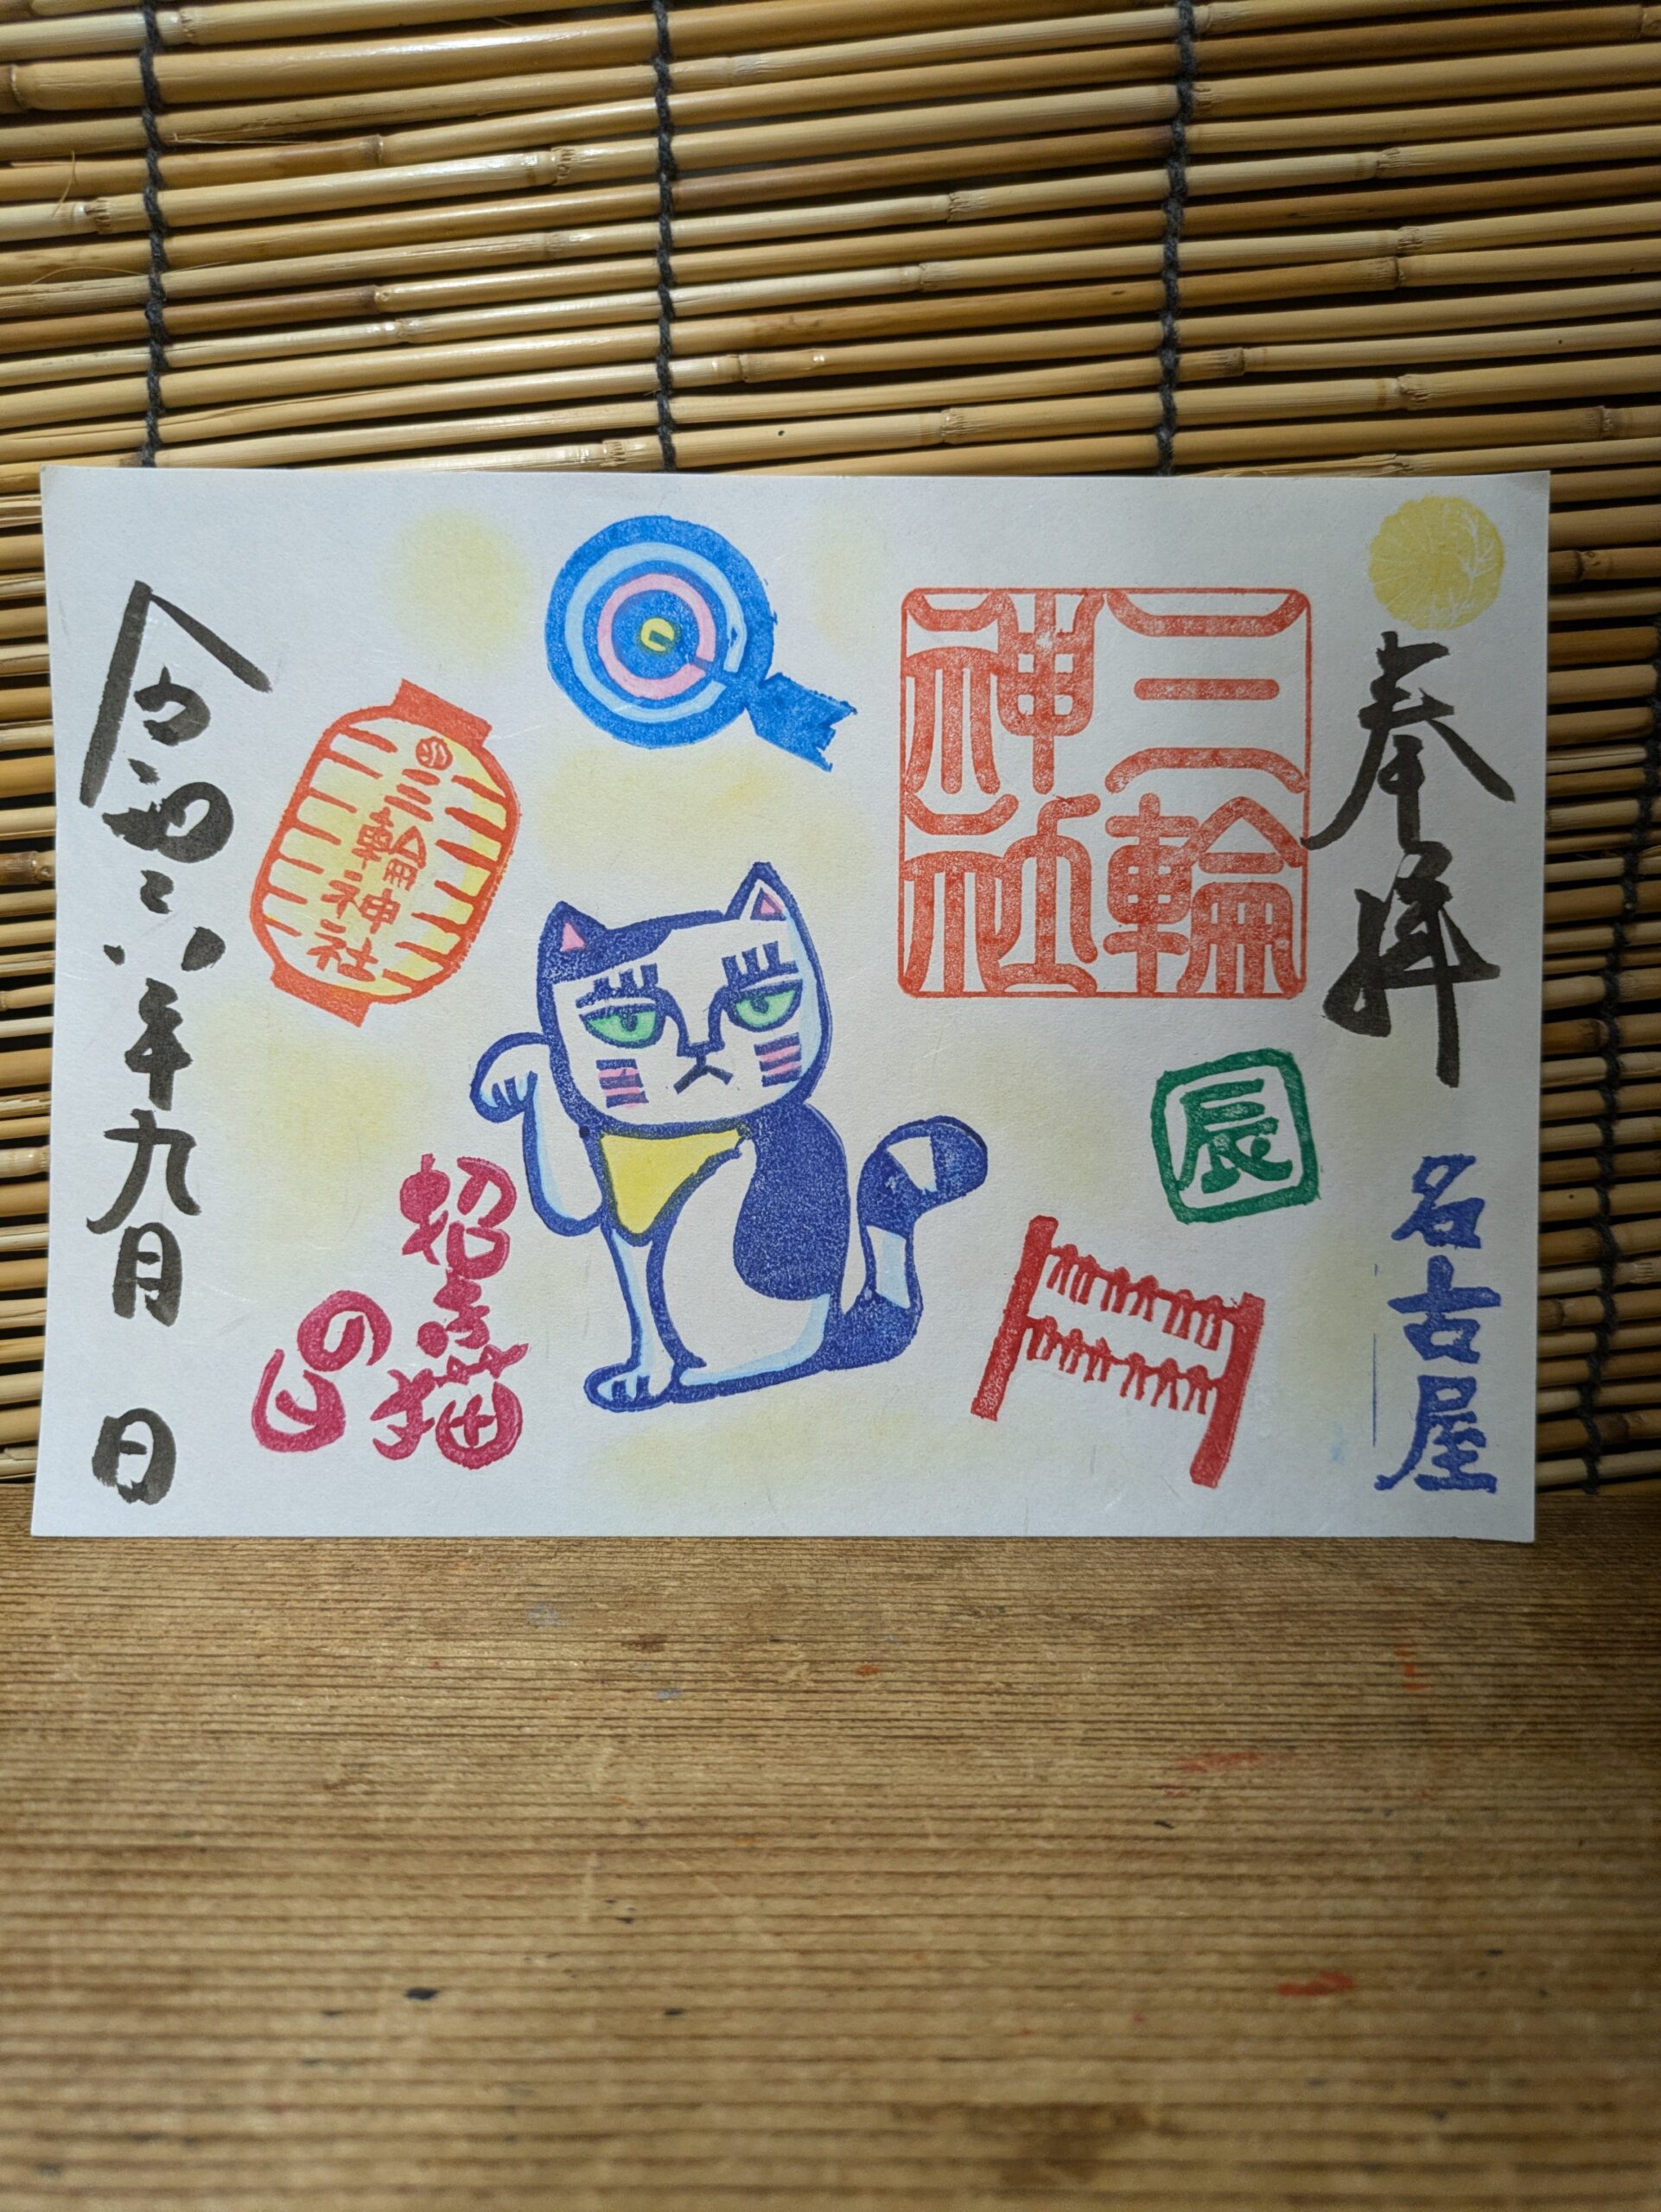 奉拝
名古屋
三輪
神社
辰
招き猫
の日
三輪神社
令和六年九月 日